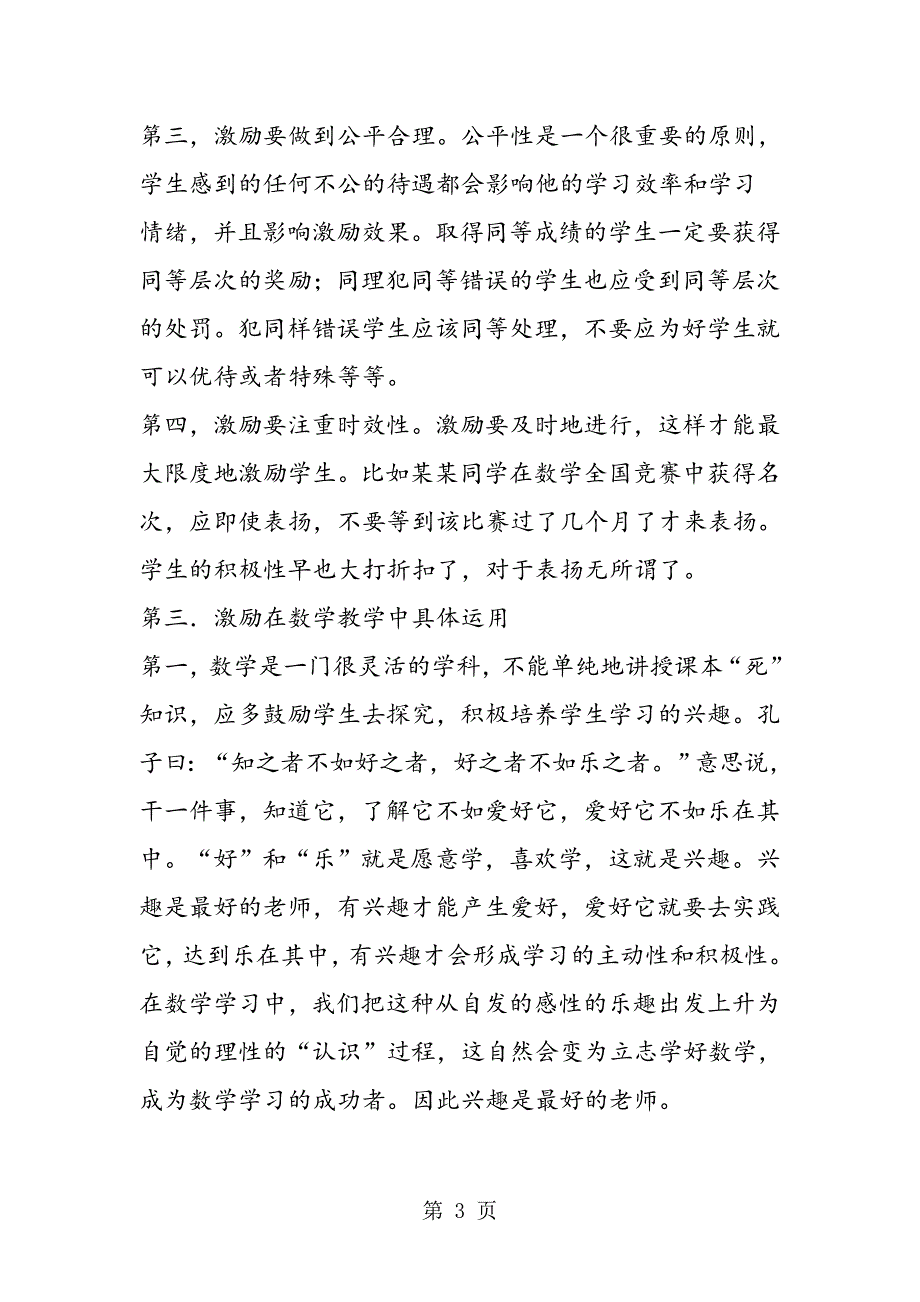 第三，激励要做到公平合理。公平性是一个很重要的原则，
学生感到的任何不公的待遇都会影响他的学习效率和学习
情绪，并且影响激励效果。取得同等成绩的学生一定要获得
同等层次的奖励；同理犯同等错误的学生也应受到同等层次
的处罚。犯同样错误学生应该同等处理，不要应为好学生就
可以优待或者特殊等等。
第四，激励要注重时效性。激励要及时地进行，这样才能最
大限度地激励学生。比如某某同学在数学全国竞赛中获得名
次，应即使表扬，不要等到该比赛过了几个月了才来表扬。
学生的积极性早也大打折扣了，对于表扬无所谓了。
第三．激励在数学教学中具体运用
第一，数学是一门很灵活的学科，不能单纯地讲授课本“死”
知识，应多鼓励学生去探究，积极培养学生学习的兴趣。孔
子曰：“知之者不如好之者，好之者不如乐之者。”意思说，
干一件事，知道它，了解它不如爱好它，爱好它不如乐在其
中。“好”和“乐”就是愿意学，喜欢学，这就是兴趣。兴
趣是最好的老师，有兴趣才能产生爱好，爱好它就要去实践
它，达到乐在其中，有兴趣才会形成学习的主动性和积极性。
在数学学习中，我们把这种从自发的感性的乐趣出发上升为
自觉的理性的“认识”过程，这自然会变为立志学好数学，
成为数学学习的成功者。因此兴趣是最好的老师。
第 3 页